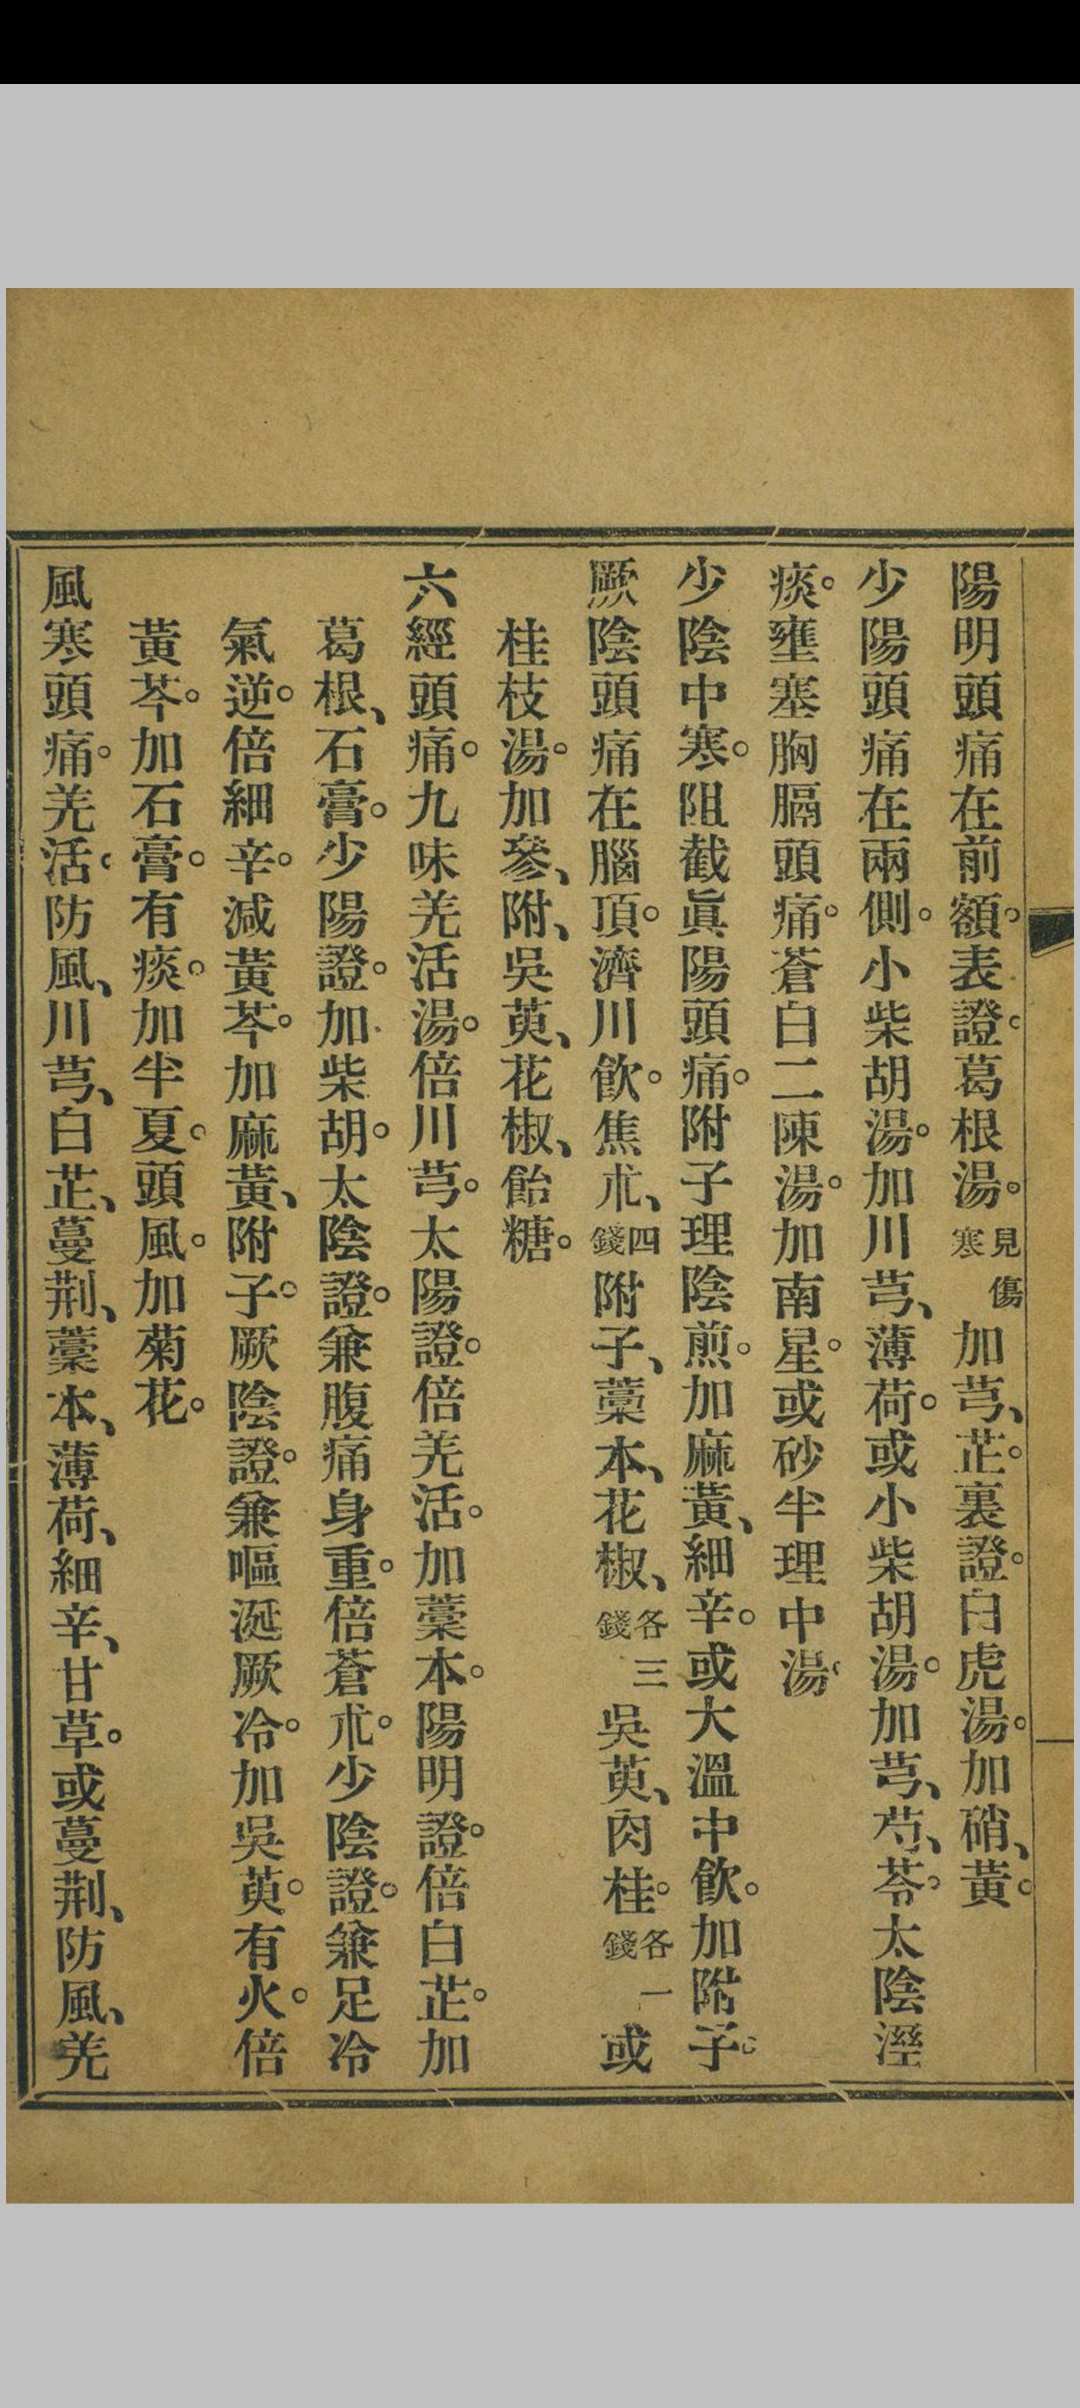 陽明頭痛在前額。表證。葛根湯。見傷寒加芎、芷。裏證。白虎湯。加硝、黃。
少陽頭痛在兩側。小柴胡湯。加川芎、薄荷。或小柴胡湯。加芎、芍、苓。太陰溼
痰。壅塞胸膈頭痛。蒼白二陳湯。加南星。或砂半理中湯。
少陰中寒。阻截眞陽頭痛。附子理陰煎。加麻黃、細辛。或大溫中飮。加附子。
厥陰頭痛在腦頂。濟川飮。焦朮、四錢附子、藁本、花椒、各三錢吳萸、肉桂。各一錢或
桂枝湯。加參、附、吳萸、花椒、飴糖。
六經頭痛。九味羌活湯。倍川芎。太陽證。倍羌活。加藁本。陽明證。倍白芷。加
葛根、石膏。少陽證。加柴胡。太陰證。兼腹痛身重。倍蒼朮。少陰證。兼足冷
氣逆。倍細辛。減黃芩。加麻黃、附子。厥陰證。兼嘔涎厥冷。加吳萸。有火。倍
黃芩。加石膏。有痰。加半夏。頭風。加菊花。
風寒頭痛。羌活。防風、川芎、白芷、蔓荆、藁本、薄荷、細辛、甘草。或蔓荆、防風、羌